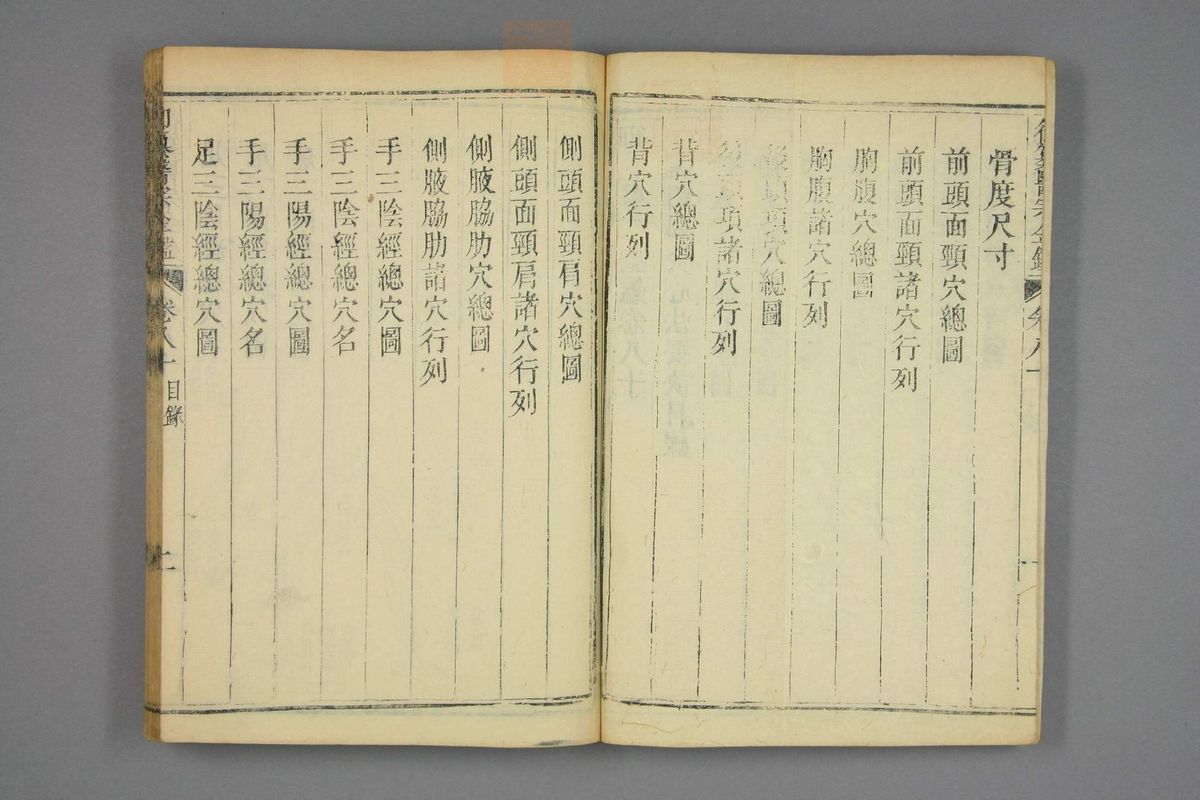 骨度尺寸
前頭面頸穴總圖
前頭面頸諸穴行列
胸腹穴總圖
胸腹諸穴行列
後頭項穴總圖
後頭項諸穴行列
背穴總圖
背穴行列
側頭面頸肩穴總圖
側頭面頸肩諸穴行列
側腋脇肋穴總圖
側腋脇肋諸穴行列
手三陰經總穴圖
手三陰經總穴名
手三陽經總穴圖
手三陽經總穴名
足三陰經總穴圖
卷八十 目錄